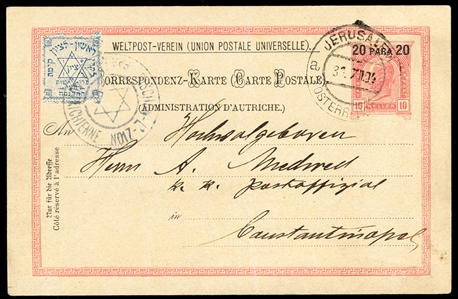 WELTPOST-VEREIN (UNION POSTALE UNIVERSELLE).
CORRESPONDENZ-KARTE CARTE POSTALE
(ADMINISTRATION D'AUTRICHE)
20 PARA 20
10 10
JERUSALEM
ÖSTERR
ראשון לציון
ציון
An Hochwolgeboren
Herrn A. Medwed
k. k. Postoffizial
in
Constantinopel
Nur für die Adresse
Côté réservé à l'adresse